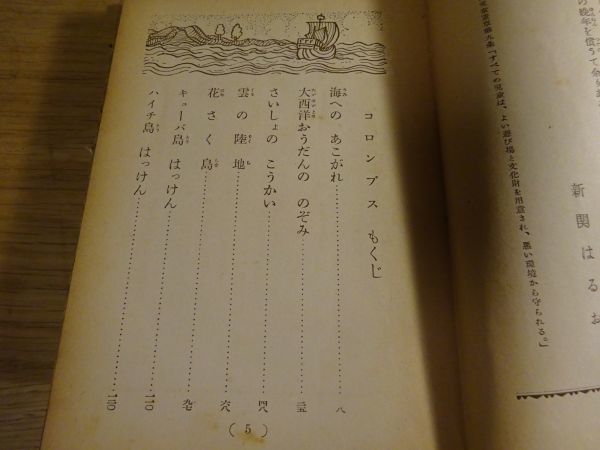 の晩年を償うて
児童憲章第九条「すべての児童は、よい遊び場と文化財を用意され、悪い環境から守られる。」
新関はるお
コロンブス もくじ
海への あこがれ……八
大西洋おうだんの のぞみ……二五
さいしょの こうかい……四八
雲の陸地……六八
花さく島……九七
キューバ島 はっけん……一一〇
ハイチ島 はっけん……
(5)